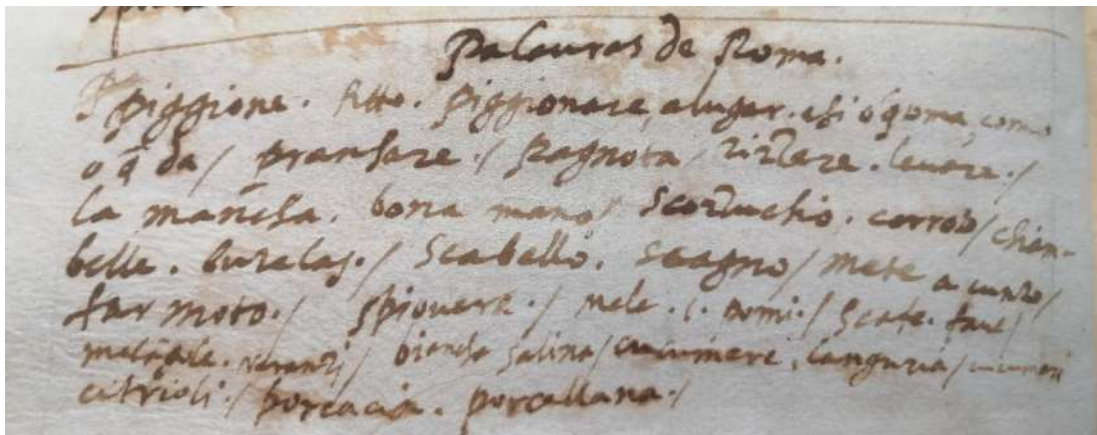 Palauras de Roma.
piggione. fitto. piggionare, alugar. asi o q̃ toma, como
o q̃ da / pransare / pagnota / tirare. leuare /
la mancha. bona mano / scortuchio. corroio / chiam-
belle. buzelas / scabello. scagno / mete a cunto /
far moto / spiouera / mele. i. pomi / scafe. faue /
melangole. naranzi / biancha salina / cucumere. languria / cucumeri
citrioli / porcacia. porcellana /